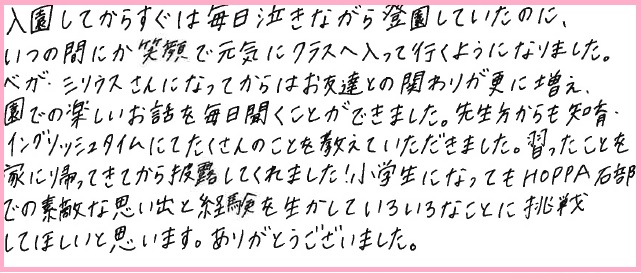 入園してからすぐは毎日泣きながら登園していたのに、
いつの間にか笑顔で元気にクラスへ入って行くようになりました。
ベガ・シリウスさんになってからはお友達との関わりが更に増え、
園での楽しいお話を毎日聞くことができました。先生方からも知育・
イングリッシュタイムにてたくさんのことを教えていただきました。習ったことを
家に帰ってきてから披露してくれました!小学生になってもHOPPA石部
での素敵な思い出と経験を生かしていろいろなことに挑戦
してほしいと思います。ありがとうございました。